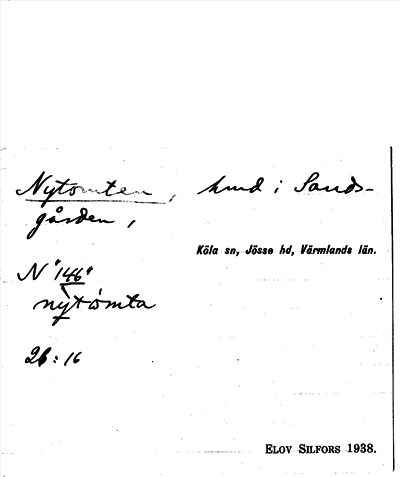 Nytomten, hmd i Sands-
gården,
Köla sn, Jösse hd, Värmlands län.
N "146"
nytomta
26:16
ELOV SILFORS 1938.